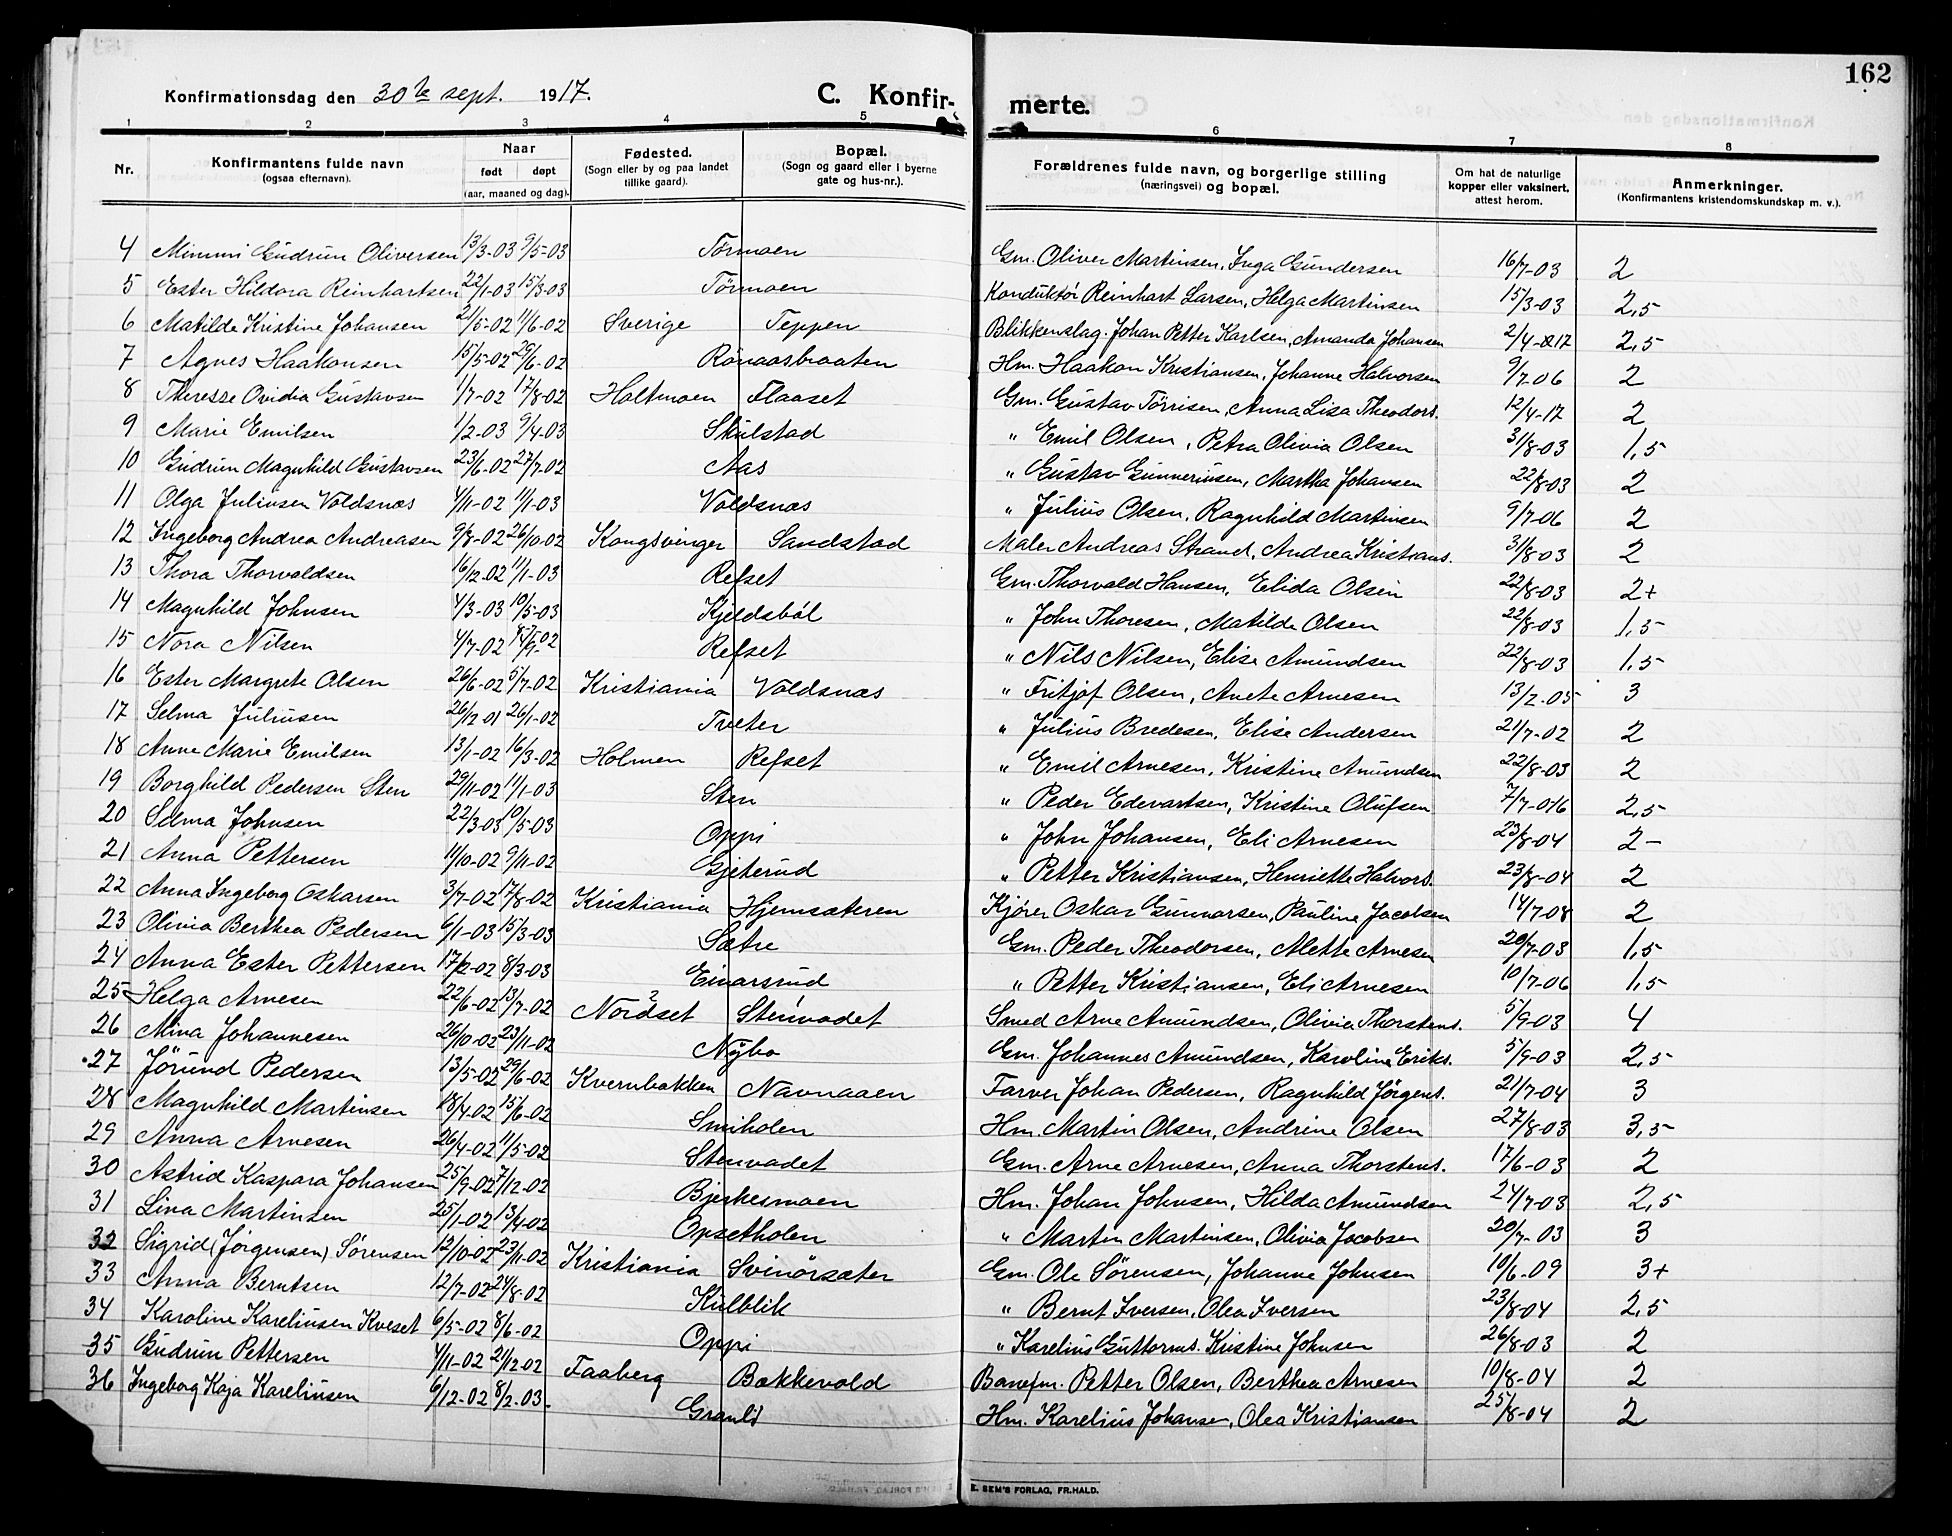 162
Konfirmationsdag den 30te sept. 1917.
C. Konfir- merte.
1 2 3 4 5 6 7 8
Nr. Konfirmantens fulde navn (ogsaa efternavn). Naar født døpt (aar, maaned og dag). Fødested. (Sogn eller by og paa landet tillike gaard). Bopæl. (Sogn og gaard eller i byerne gate og hus-nr.). Forældrenes fulde navn, og borgerlige stilling (næringsvei) og bopæl. Om hat de naturlige kopper eller vaksinert, attest herom. Anmerkninger. (Konfirmantens kristendomskundskap m. v.).
4 Mimmi Gudrun Oliversen 13/3-03 9/5-03 Törmoen Gm. Oliver Martinsen, Inga Gundersen 16/7-03 2
5 Ester Hildora Reinhartsen 22/1-03 15/3-03 Törmoen Konduktör Reinhart Larsen, Helga Martinsen 15/3-03 2,5
6 Matilde Kristine Johansen 21/5-02 11/6-02 Sverige Teppen Blikkenslag. Johan Petter Karlsen, Amanda Johansen 2/4-17 2,5
7 Agnes Haakonsen 15/5-02 29/6-02 Rönaasbraaten Hm. Haakon Kristiansen, Johanne Halvorsen 9/7-06 2
8 Therese Ovidia Gustavsen 1/7-02 17/8-02 Holtmoen Flaaset Gm. Gustav Törrisen, Anna Lisa Theodors. 12/4-17 2
9 Marie Emilsen 1/2-03 9/4-03 Skulstad " Emil Olsen, Petra Olivia Olsen 31/8-03 1,5
10 Gudrun Magnhild Gustavsen 23/6-02 27/7-02 Aas " Gustav Gunneriusen, Martha Johansen 22/8-03 2
11 Olga Juliusen Voldsnæs 4/11-02 11/1-03 Voldsnæs " Julius Olsen, Ragnhild Martinsen 9/7-06 2
12 Ingeborg Andrea Andreasen 9/8-02 26/10-02 Kongsvinger Sandstad Maler Andreas Strand, Andrea Kristians. 31/8-03 2
13 Thora Thorvaldsen 16/12-02 11/1-03 Refset Gm. Thorvald Hansen, Elida Olsen 22/8-03 2+
14 Magnhild Johnsen 4/3-03 10/5-03 Kjeldsböl " John Thoresen, Matilde Olsen 22/8-03 1,5
15 Nora Nilsen 4/7-02 Refset " Nils Nilsen, Elise Amundsen 22/8-03 1,5
16 Ester Margrete Olsen 26/6-02 5/7-02 Kristiania Voldsnæs " Fritjof Olsen, Anete Arnesen 13/2-05 3
17 Selma Juliusen 26/12-01 26/1-02 Tveter " Julius Bredesen, Elise Andersen 21/7-02 2
18 Anne Marie Emilsen 13/1-02 16/3-02 Holmen Refset " Emil Arnesen, Kristine Amundsen 22/8-03 2
19 Borghild Pedersen Sten 29/11-02 11/1-03 Sten " Peder Edevartsen, Kristine Olufsen 7/7-06 2,5
20 Selma Johnsen 22/3-03 10/5-03 Oppi " John Johansen, Eli Arnesen 23/8-04 2-
21 Anna Pettersen 11/10-02 9/11-02 Gjeterud " Petter Kristiansen, Henriette Halvors. 23/8-04 2
22 Anna Ingeborg Oskarsen 3/7-02 17/8-02 Kristiania Hjemsæteren Kjører Oskar Gunnarsen, Pauline Jacobsen 14/7-08 2
23 Olivia Berthea Pedersen 6/1-03 15/3-03 Sætre Gm. Peder Theodorsen, Alette Arnesen 20/7-03 1,5
24 Anna Ester Pettersen 17/12-02 8/3-03 Einarsrud " Petter Kristiansen, Eli Arnesen 10/7-06 1,5
25 Helga Arnesen 22/6-02 13/7-02 Nordset Stenvadet Smed Arne Amundsen, Olivia Thorstens. 5/9-03 4
26 Mina Johannesen 26/10-02 23/11-02 Nybo Gm. Johannes Amundsen, Karoline Eriks. 5/9-03 2,5
27 Jörund Pedersen 13/5-02 29/6-02 Kvernbakken Navnaaen Farver Johan Pedersen, Ragnhild Jörgens. 21/7-04 3
28 Magnhild Martinsen 18/4-02 15/6-02 Smiholen Hm. Martin Olsen, Andrine Olsen 27/8-03 3,5
29 Anna Arnesen 26/4-02 11/5-02 Stenvadet Gm. Arne Arnesen, Anna Thorstens. 17/6-03 2
30 Astrid Kaspara Johansen 25/9-02 7/12-02 Bjerkesmoen Hm. Johan Johnsen, Hilda Amundsen 24/7-03 2,5
31 Lina Martinsen 25/1-02 13/4-02 Opsetholen " Martin Martinsen, Olivia Jacobsen 20/7-03 3
32 Sigrid (Jörgensen) Sörensen 12/10-02 23/11-02 Kristiania Svinörsæter Gm. Ole Sörensen, Johanne Johnsen 10/6-09 3+
33 Anna Berntsen 12/7-02 24/8-02 Kulblik " Bernt Iversen, Olea Iversen 23/8-04 2,5
34 Karoline Kareliusen Kveset 6/5-02 8/6-02 Oppi " Karelius Guttorms. Kristine Johnsen 26/8-03 2
35 Gudrun Pettersen 4/11-02 21/12-02 Faaberg Bakkevold Banefm. Petter Olsen, Berthea Arnesen 10/8-04 2
36 Ingeborg Kaja Kareliusen 6/12-02 8/2-03. Granli Hm. Karelius Johansen, Olea Kristiansen 25/8-04 2
E. SEM'S FORLAG, FR.HALD.